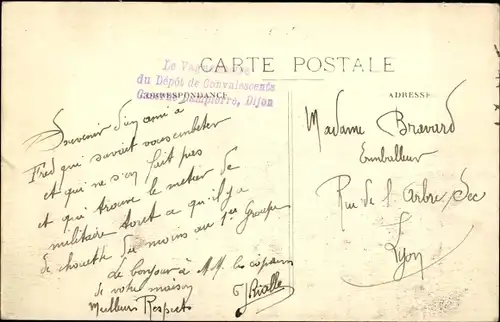 CARTE POSTALE
Le Vaguemestre
du Dépôt de Convalescents
Caserne Dampierre, Dijon
CORRESPONDANCE
ADRESSE
Souvenir d'un ami à
Fred qui savait vous embêter
et qui ne s'en fait pas
et qui trouve le métier de
militaire tout a qu'il y a
de chouette du moins au 1er Groupe
de bonjour à MM. les copains
de votre maison
Meilleurs Respects
Rialle
Madame Bravard
Emballeur
Rue de l'Arbre Sec
Lyon